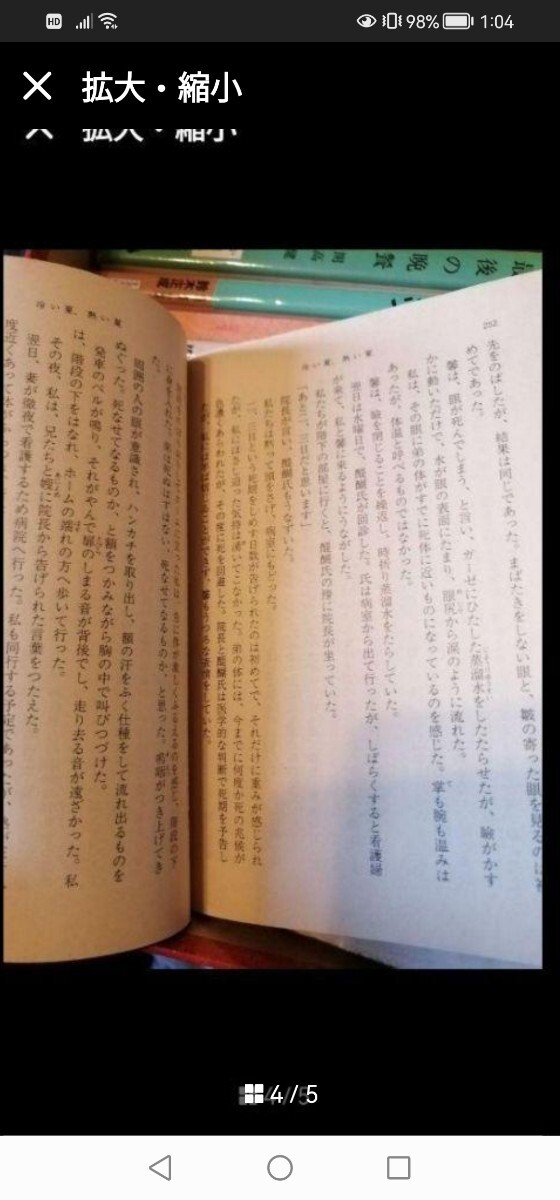 HD
98%
1:04
拡大・縮小
拡大・縮小
最後の晩餐
開高健
鈴木正彦
252
冷い夏、熱い夏
先をのばしたが、結果は同じであった。まばたきをしない眼と、皺の寄った眼を見るのは
めてであった。
馨は、眼が死んでしまう、と言い、ガーゼにひたした蒸溜水をしたたらせたが、瞼がかす
かに動いただけで、水が眼の表面にたまり、眼尻から涙のように流れた。
私は、その眼に弟の体がすでに死体に近いものになっているのを感じた。掌も腕も温みは
あったが、体温と呼べるものではなかった。
馨は、瞼を閉じることを繰返し、時折り蒸溜水をたらしていた。
翌日は水曜日で、醍醐氏が回診した。氏は病室から出て行ったが、しばらくすると看護婦
が来て、私と馨に来るようにうながした。
私たちが階下の部屋に行くと、醍醐氏の傍に院長が坐っていた。
「あと二、三日だと思います」
院長が言い、醍醐氏もうなずいた。
私たちは黙って頭をさげ、病室にもどった。
二、三日という死期をしめす日数が告げられたのは初めてで、それだけに重みが感じられ
たが、私にはさし迫った気持は湧いてこなかった。弟の体には、今までに何度か死の兆候が
色濃くあらわれたが、その度に死を回避した。院長と醍醐氏は医学的な判断で死期を予告し
冷い夏、熱い夏
た。
周囲の人の眼が意識され、ハンカチを取り出し、額の汗をふく仕種をして流れ出るものを
ぬぐった。死なせてなるものか、と額をつかみながら胸の中で叫びつづけた。
発車のベルが鳴り、それがやんで扉のしまる音が背後でし、走り去る音が遠ざかった。私
は、階段の下をはなれ、ホームの端れの方へ歩いて行った。
その夜、私は、兄たちと嫂に院長から告げられた言葉をつたえた。
翌日、妻が徹夜で看護するため病院へ行った。私も同行する予定であったが、
4/5